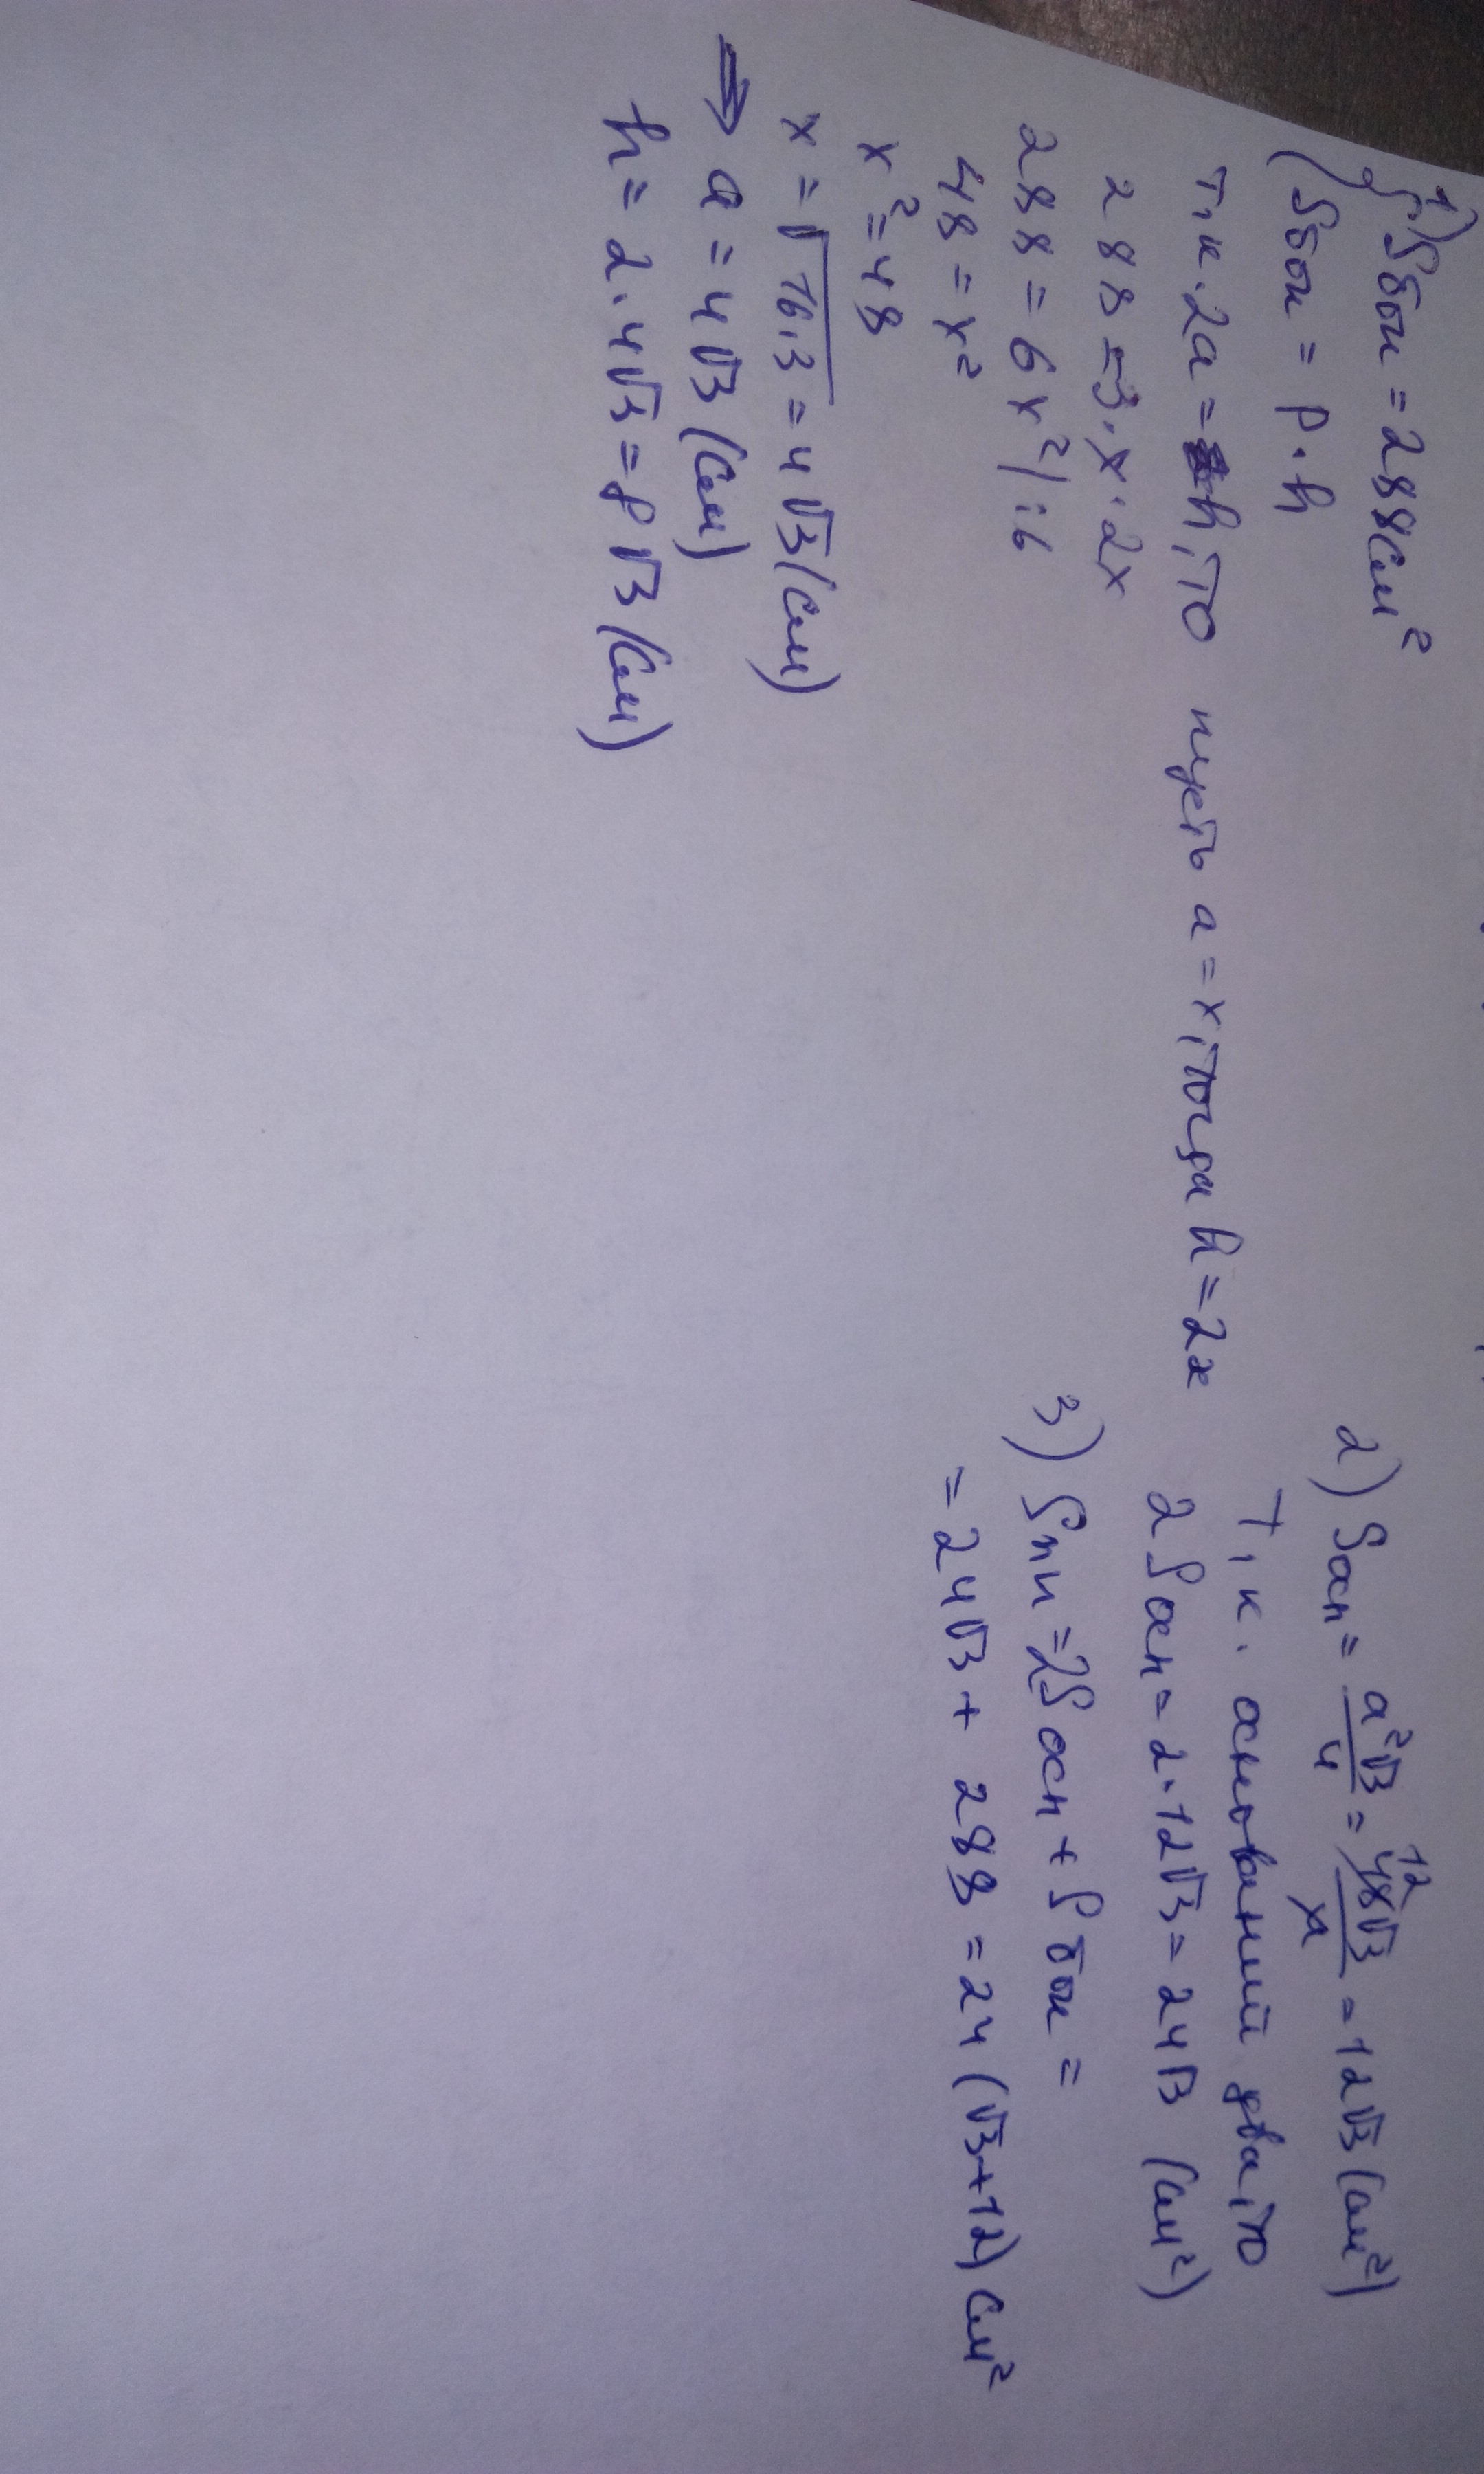 1) Sбок = 288 см²
Sбок = P · h
т.к. 2a = h, то пусть a = x, тогда h = 2x
288 = 3 · x · 2x
288 = 6x² | :6
48 = x²
x² = 48
x = √16·3 = 4√3 (см)
⇒ a = 4√3 (см)
h = 2 · 4√3 = 8√3 (см)
2) Sосн = a²√3/4 = 48√3/4 = 12√3 (см²)
12
т.к. оснований два, то
2Sосн = 2 · 12√3 = 24√3 (см²)
3) Sпп = 2Sосн + Sбок =
= 24√3 + 288 = 24(√3 + 12) см²